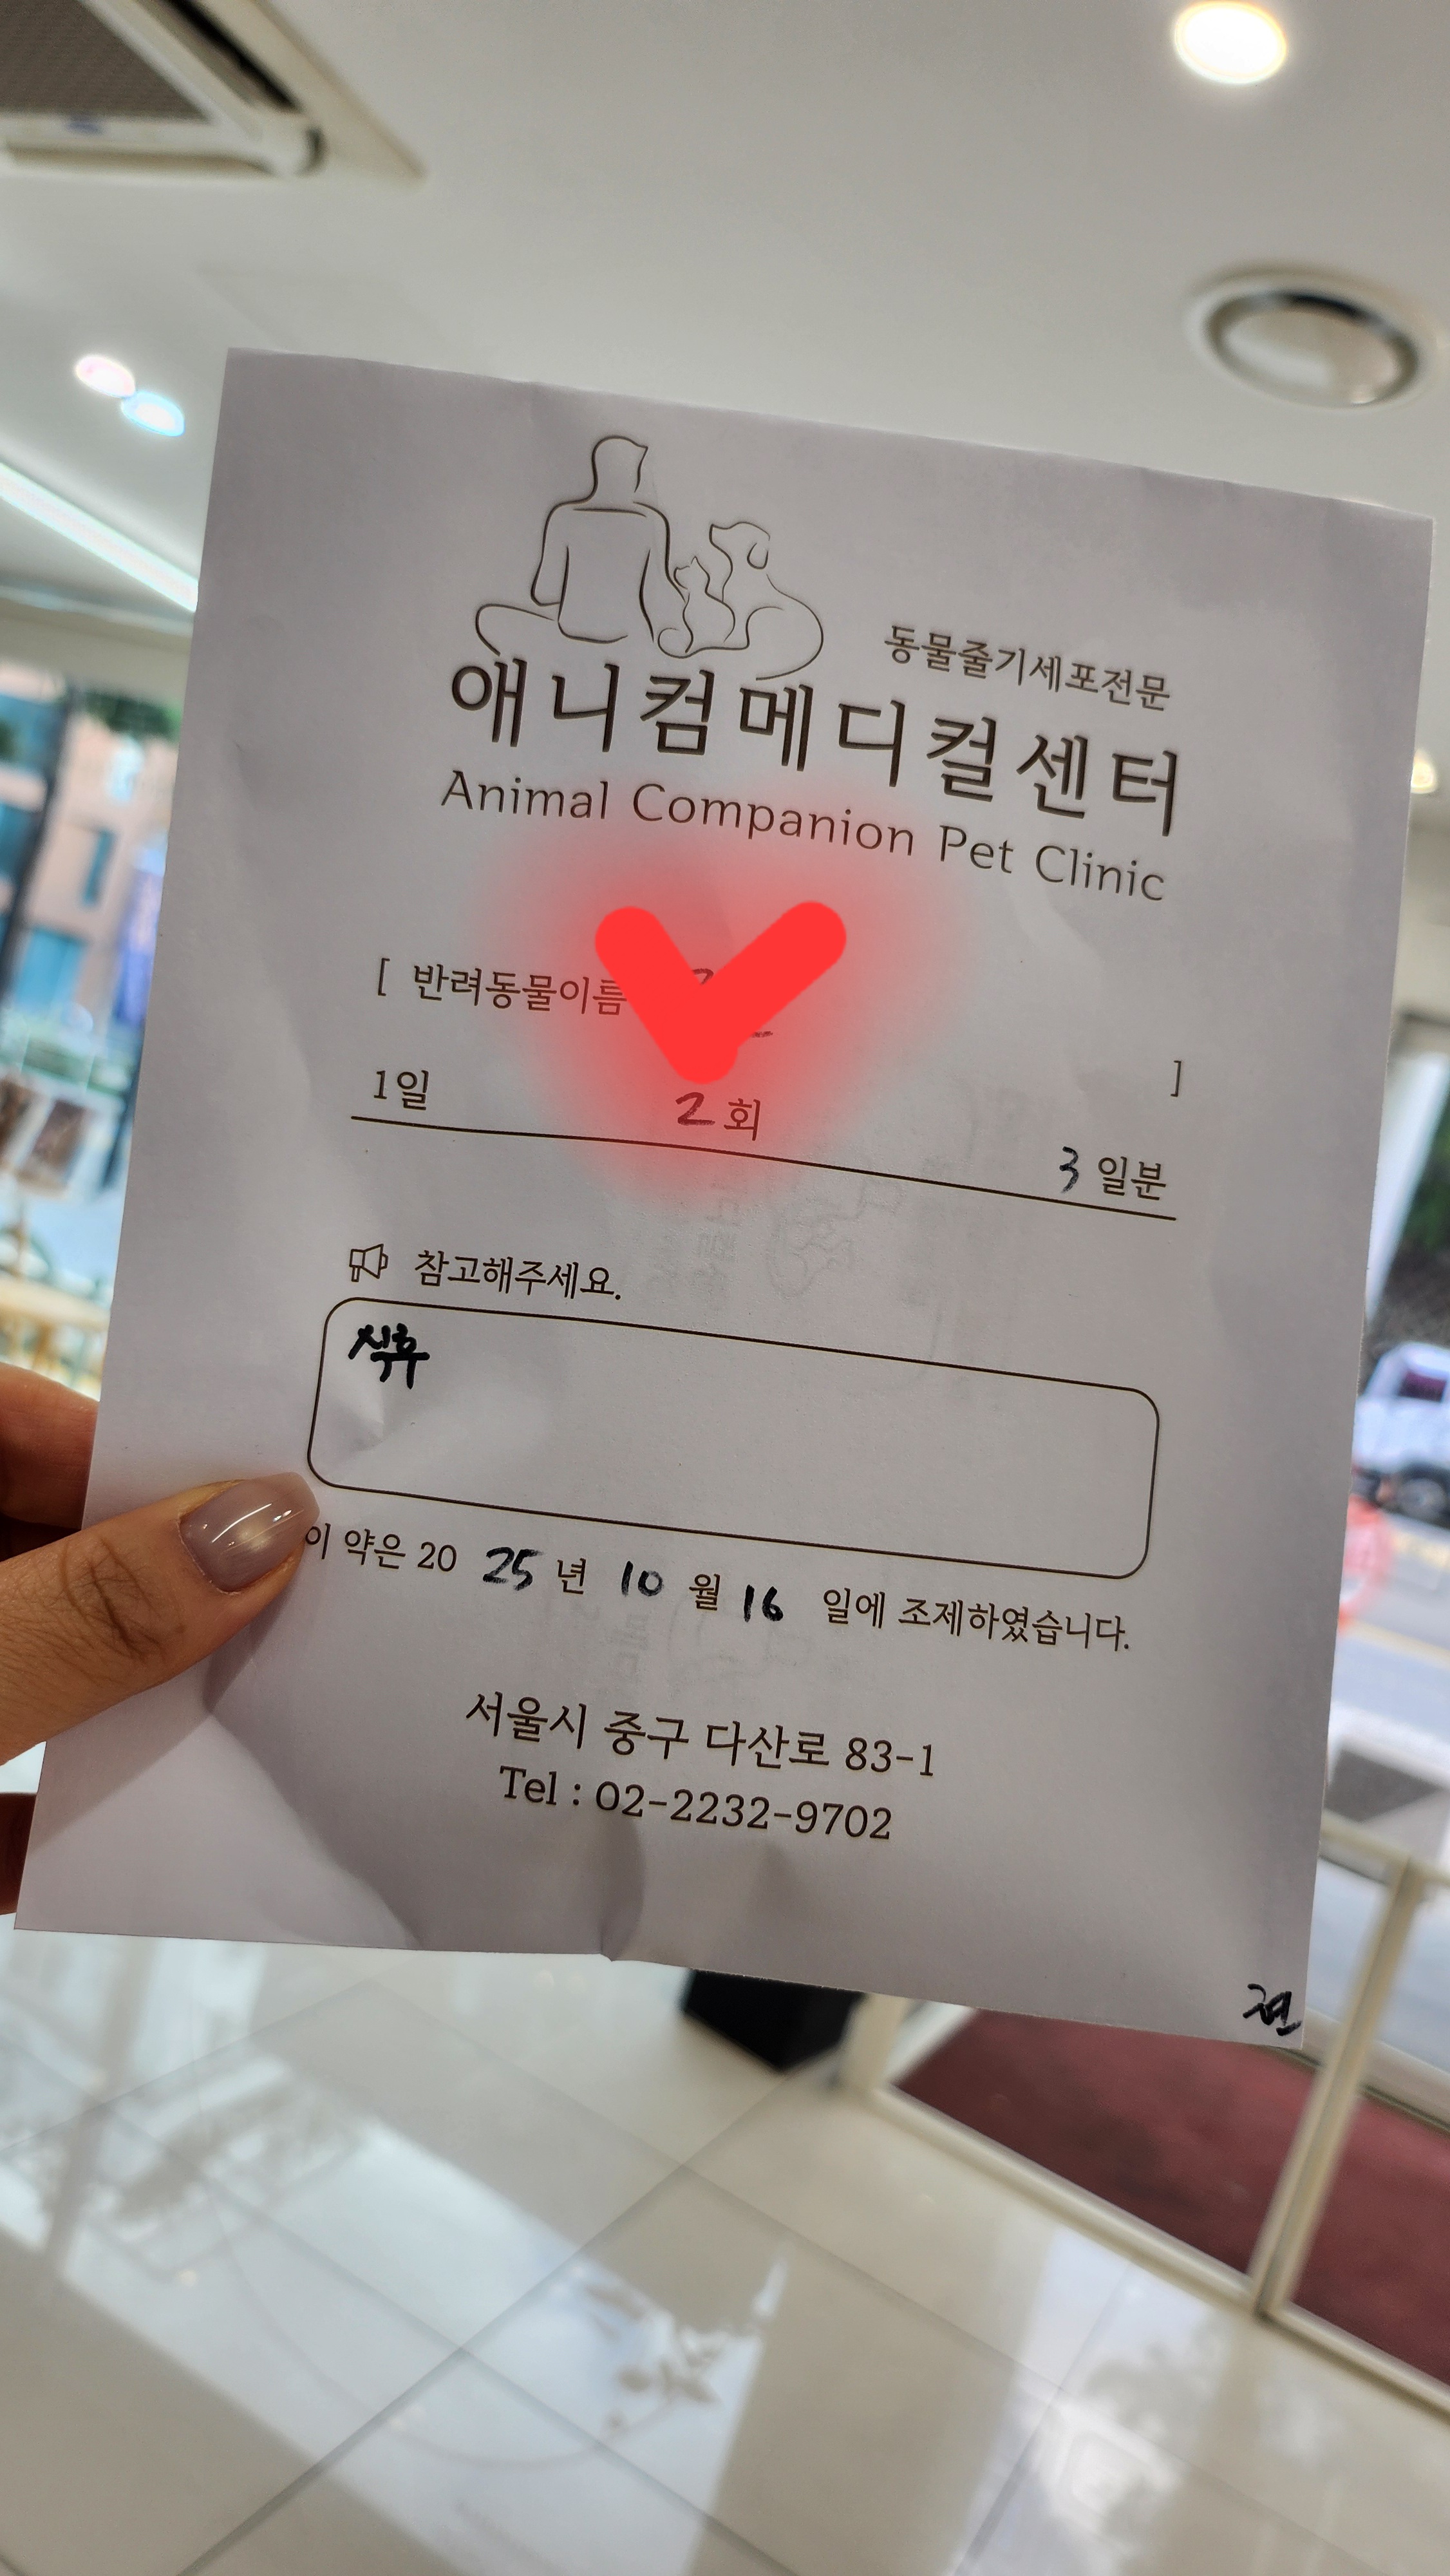 동물줄기세포전문
애니컴메디컬센터
Animal Companion Pet Clinic
[ 반려동물이름 ]
1일 2회 3일분
참고해주세요.
식후
이 약은 2025년 10월 16일에 조제하였습니다.
서울시 중구 다산로 83-1
Tel : 02-2232-9702